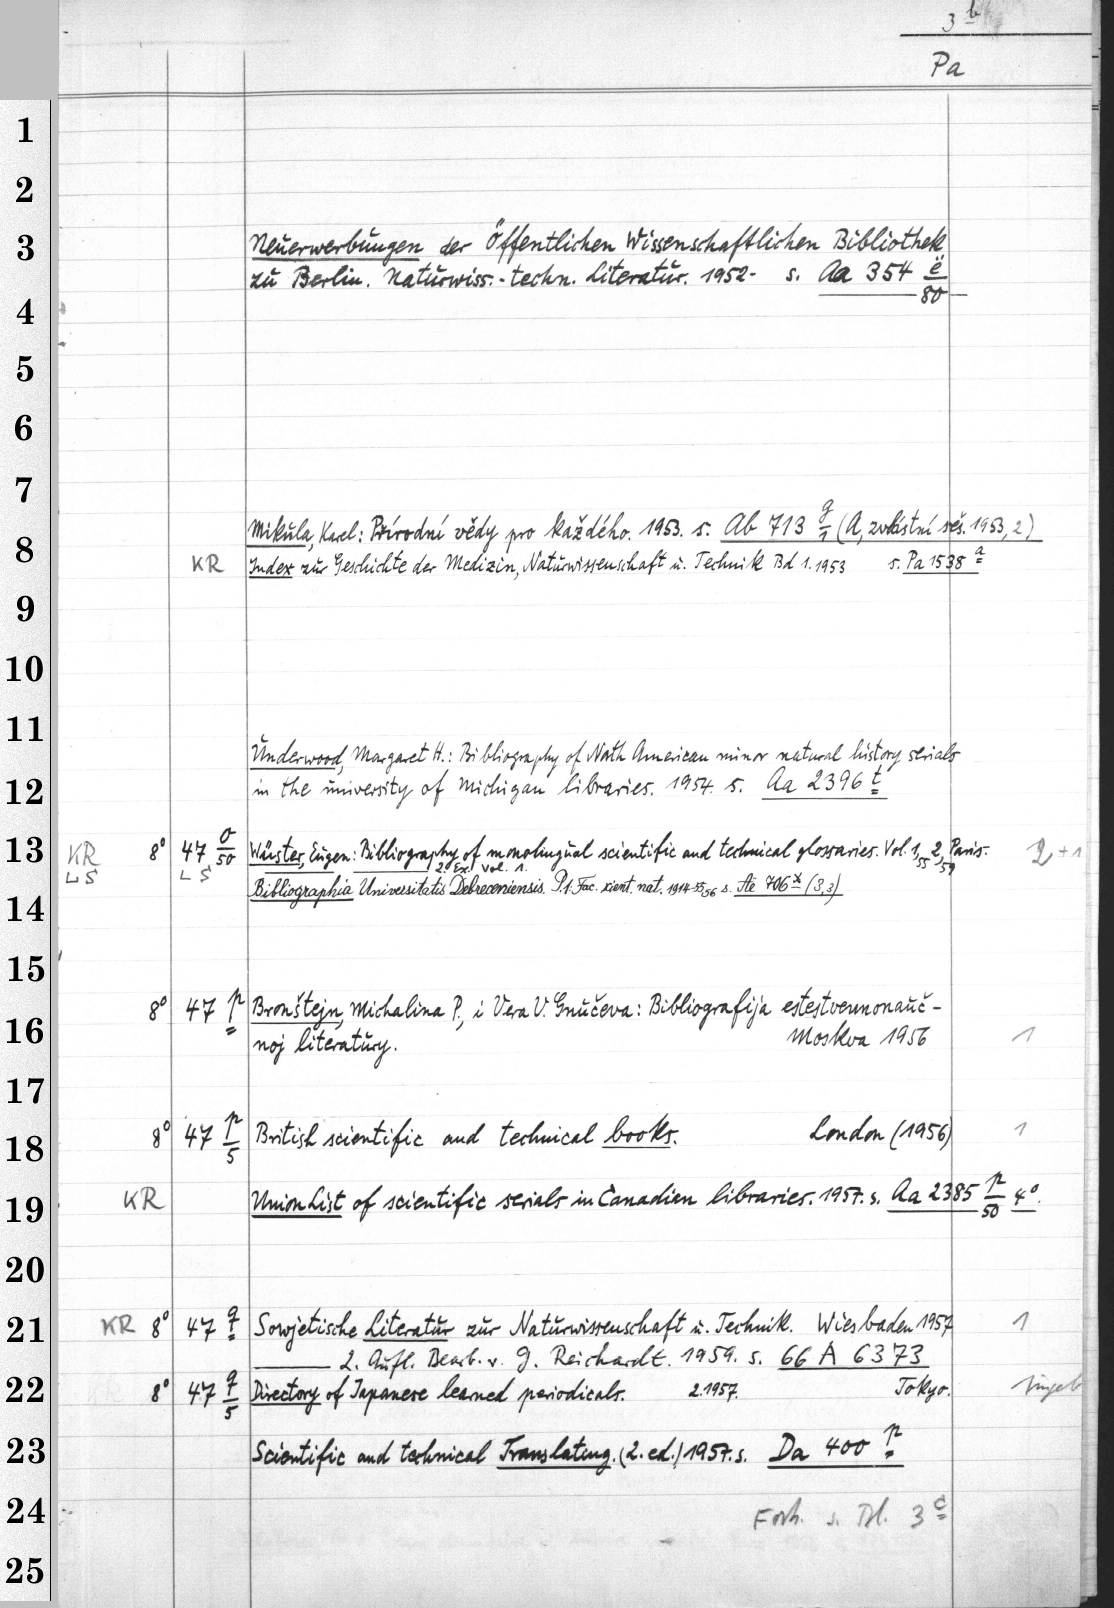 3 b
Pa
1
2
3 Neuerwerbungen der Öffentlichen Wissenschaftlichen Bibliothek
zu Berlin. Naturwiss.-techn. Literatur. 1952- s. Aa 354 e/80
4
5
6
7
Mikula, Karel: Přírodní vědy pro každého. 1953. s. Ab 713 g/1 (A, zvláštní seš. 1953, 2)
8 KR Index zur Geschichte der Medizin, Naturwissenschaft u. Technik Bd 1. 1953 s. Pa 1538 a
9
10
11
Underwood, Margaret H.: Bibliography of North American minor natural history serials
12 in the university of Michigan libraries. 1954. s. Aa 2396 t
13 KR 8° 47 o/50 Wüster, Eugen: Bibliography of monolingual scientific and technical glossaries. Vol. 1,55 2,59 Paris. 2 + 1
LS LS 2. Ex. Vol. 1.
Bibliographia Universitatis Debreceniensis. P. 1. Fac. scient. nat. 1914-55/56 s. Ae 706 x (3,3)
14
15
8° 47 p Bronštejn, Michalina P., i Vera V. Gnučeva: Bibliografija estestvennonauč-
16 noj literatury. Moskva 1956 1
17
18 8° 47 p/5 British scientific and technical books. London (1956) 1
19 KR Union List of scientific serials in Canadian libraries. 1957. s. Aa 2385 p/50 4°.
20
21 KR 8° 47 q Sowjetische Literatur zur Naturwissenschaft u. Technik. Wiesbaden 1957 1
——— 2. Aufl. Bearb. v. G. Reichardt. 1959. s. 66 A 6373
22 8° 47 q/5 Directory of Japanese learned periodicals. 2. 1957. Tokyo.
23 Scientific and technical Translating. (2. ed.) 1957. s. Da 400 p
24 Forts. s. Bl. 3 c
25